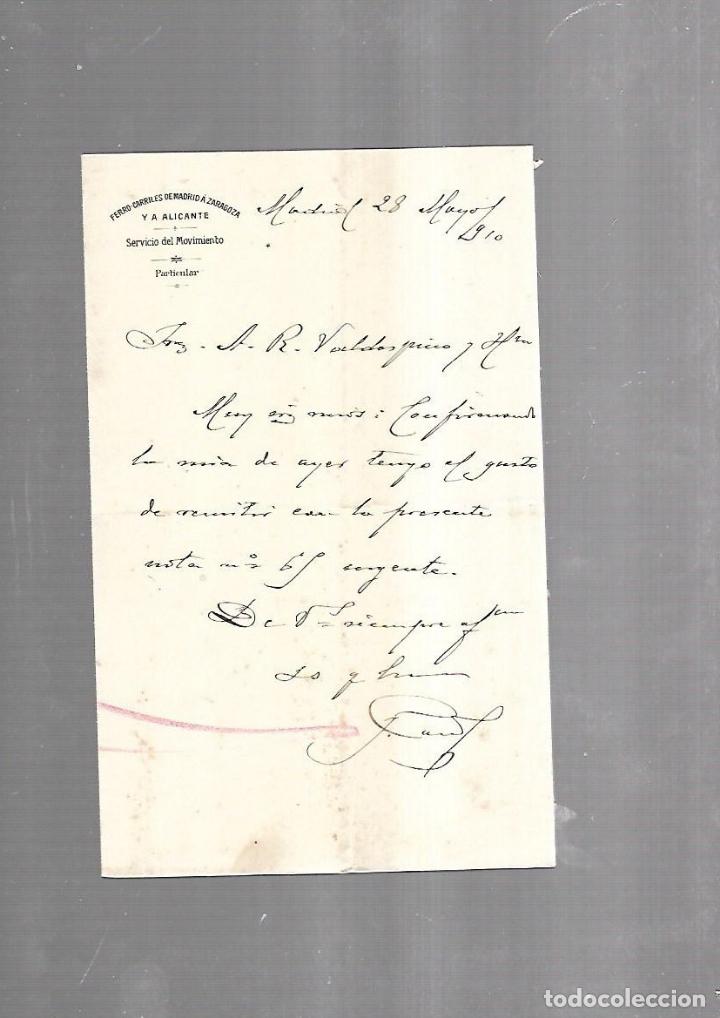 FERRO-CARRILES DE MADRID Á ZARAGOZA
Y A ALICANTE
Servicio del Movimiento
Particular
Madrid 28 Mayo
910
A. R. Valdespino y Hno
Muy mios: Confirmando
la mia de ayer tengo el gusto
de remitir con la presente
nota nº 65 urgente.
De Vs siempre afmo
todocoleccion
todocoleccion.net